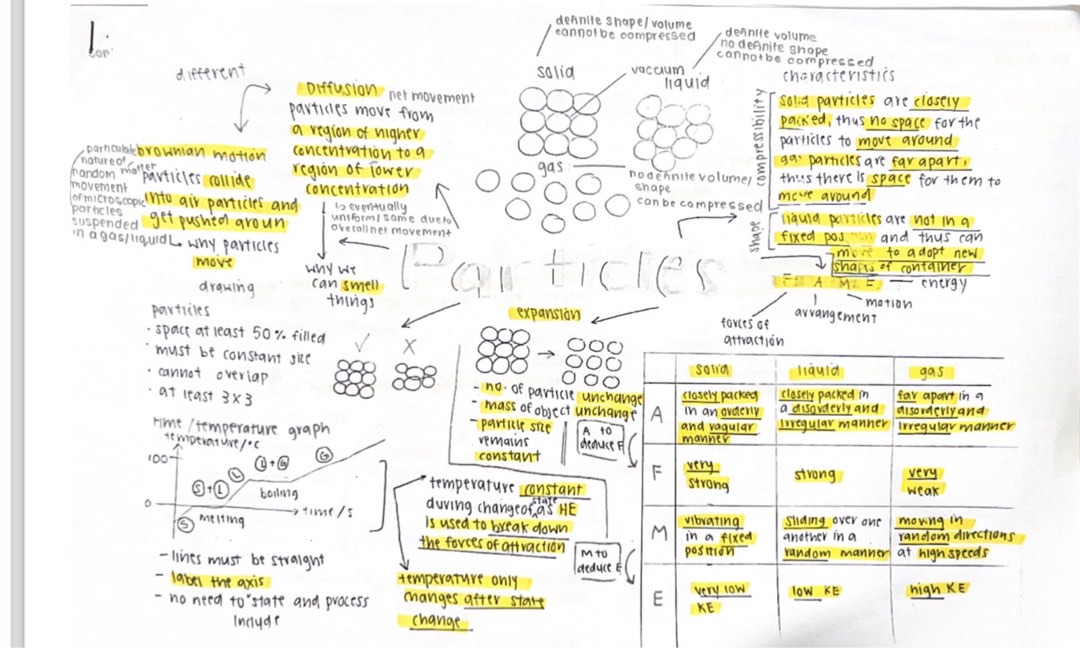 1.
con:
definite shape/volume
cannot be compressed
definite volume
no definite shape
cannot be compressed
solid
vaccum
liquid
gas
no definite volume/
shape
can be compressed
characteristics
compressibility
solid particles are closely
packed, thus no space for the
particles to move around
gas particles are far apart,
thus there is space for them to
move around
shape
liquid particles are not in a
fixed and thus can
move to adopt new
shapes of container
F A M E — energy
motion
arrangement
forces of
attraction
different
Diffusion net movement
particles move from
a region of higher
concentration to a
region of lower
concentration
↳ eventually
uniform/same due to
overall net movement
why we
can smell
things
brownian motion
particles collide
into air particles and
get pushed aroun
↳ why particles
move
particulate
nature of matter
random
movement
of microscopic
particles
suspended
in a gas/liquid
Particles
drawing
particles
· space at least 50% filled
· must be constant size
· cannot overlap
· at least 3x3
✓ X
expansion
- no. of particle unchange
- mass of object unchange
- particle size
remains
constant
A to
deduce F
time/temperature graph
temperature/°c
100
0
S
S+L
L
L+G
G
boiling
melting
time/s
- lines must be straight
- label the axis
- no need to "state and process
include
temperature constant
during change of state as HE
is used to break down
the forces of attraction
temperature only
changes after state
change
M to
deduce E
solid liquid gas
A
closely packed
in an orderly
and regular
manner
closely packed in
a disorderly and
irregular manner
far apart in a
disorderly and
irregular manner
F
very
strong
strong
very
weak
M
vibrating
in a fixed
position
sliding over one
another in a
random manner
moving in
random directions
at high speeds
E
very low
KE
low KE
high KE